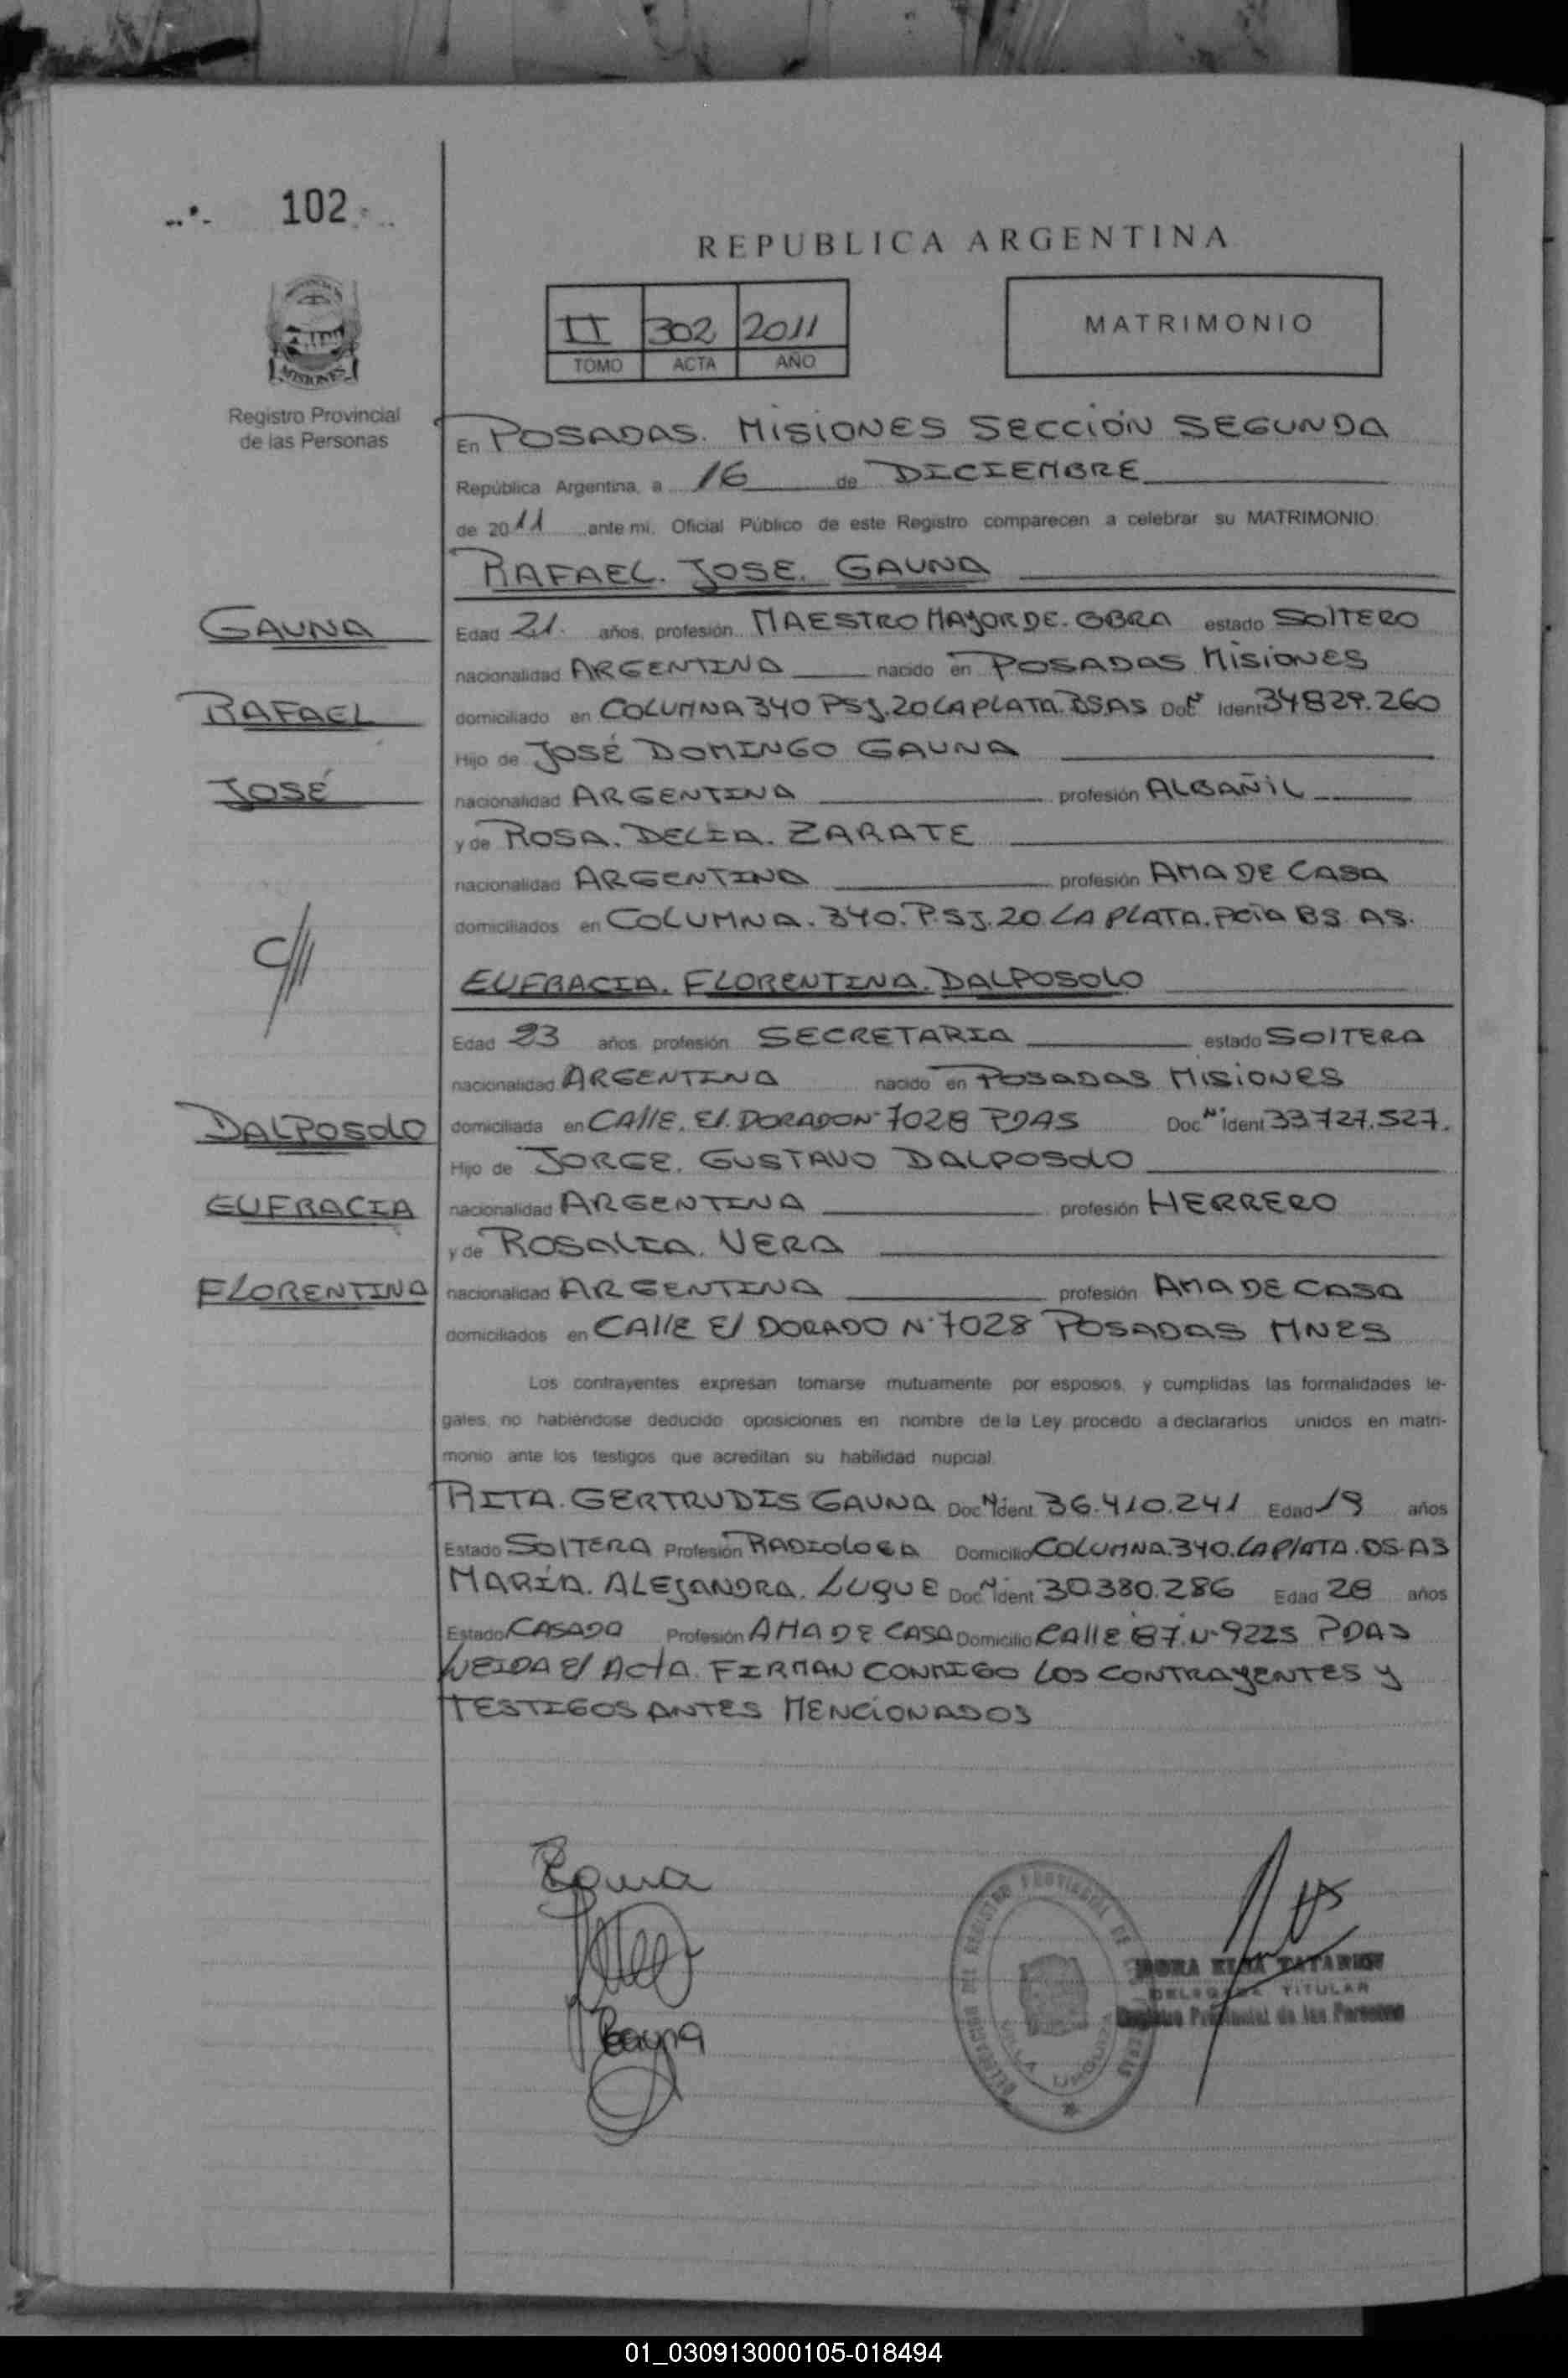 102
REPUBLICA ARGENTINA
II 302 2011
TOMO ACTA AÑO
MATRIMONIO
MISIONES
Registro Provincial
de las Personas
En POSADAS. MISIONES SECCIÓN SEGUNDA
República Argentina, a 16 de DICIEMBRE
de 2011 ante mi, Oficial Público de este Registro comparecen a celebrar su MATRIMONIO:
RAFAEL. JOSE. GAUNA
GAUNA
Edad 21. años, profesión MAESTRO MAYOR DE. OBRA estado SOLTERO
nacionalidad ARGENTINA nacido en POSADAS MISIONES
RAFAEL
domiciliado en COLUMNA 340 PSJ. 20 LA PLATA. BSAS Doc. Nº Ident 34829.260
Hijo de JOSÉ DOMINGO GAUNA
JOSÉ
nacionalidad ARGENTINA profesión ALBAÑIL
y de ROSA. DELIA. ZARATE
nacionalidad ARGENTINA profesión AMA DE CASA
domiciliados en COLUMNA. 340. P.SJ. 20. LA PLATA. PCIA BS. AS.
EUFRACIA. FLORENTINA. DALPOSOLO
Edad 23 años profesión SECRETARIA estado SOLTERA
nacionalidad ARGENTINA nacido en POSADAS MISIONES
DALPOSOLO
domiciliada en CALLE. El. DORADO Nº 7028 PDAS Doc. Nº Ident 33.727.527.
Hijo de JORGE. GUSTAVO DALPOSOLO
EUFRACIA
nacionalidad ARGENTINA profesión HERRERO
y de ROSALIA. VERA
FLORENTINA
nacionalidad ARGENTINA profesión AMA DE CASA
domiciliados en CALLE El DORADO Nº 7028 POSADAS MNES
Los contrayentes expresan tomarse mutuamente por esposos, y cumplidas las formalidades le-
gales, no habiéndose deducido oposiciones en nombre de la Ley procedo a declararlos unidos en matri-
monio ante los testigos que acreditan su habilidad nupcial.
RITA. GERTRUDIS GAUNA Doc. Nº Ident. 36.410.241 Edad 19 años
Estado SOLTERA Profesión RADIOLOGA Domicilio COLUMNA. 340. LA PLATA. BS. AS
MARÍA. ALEJANDRA. LUQUE Doc. Nº Ident 30.380.286 Edad 28 años
Estado CASADA Profesión AMA DE CASA Domicilio CALLE 87. Nº 9225 PDAS
LEIDA El ACTA. FIRMAN CONMIGO LOS CONTRAYENTES Y
TESTIGOS ANTES MENCIONADOS
DELEGADA TITULAR
Registro Provincial de las Personas
01_030913000105-018494